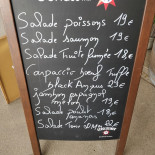 Salade poissons 19€
Salade saumon 19€
Salade Truite fumée 18€
Carpaccio bœuf Truffe
black Angus 23€
Jambon espagnol
melon 19€
Salade poulet 18€
Salade Tomo